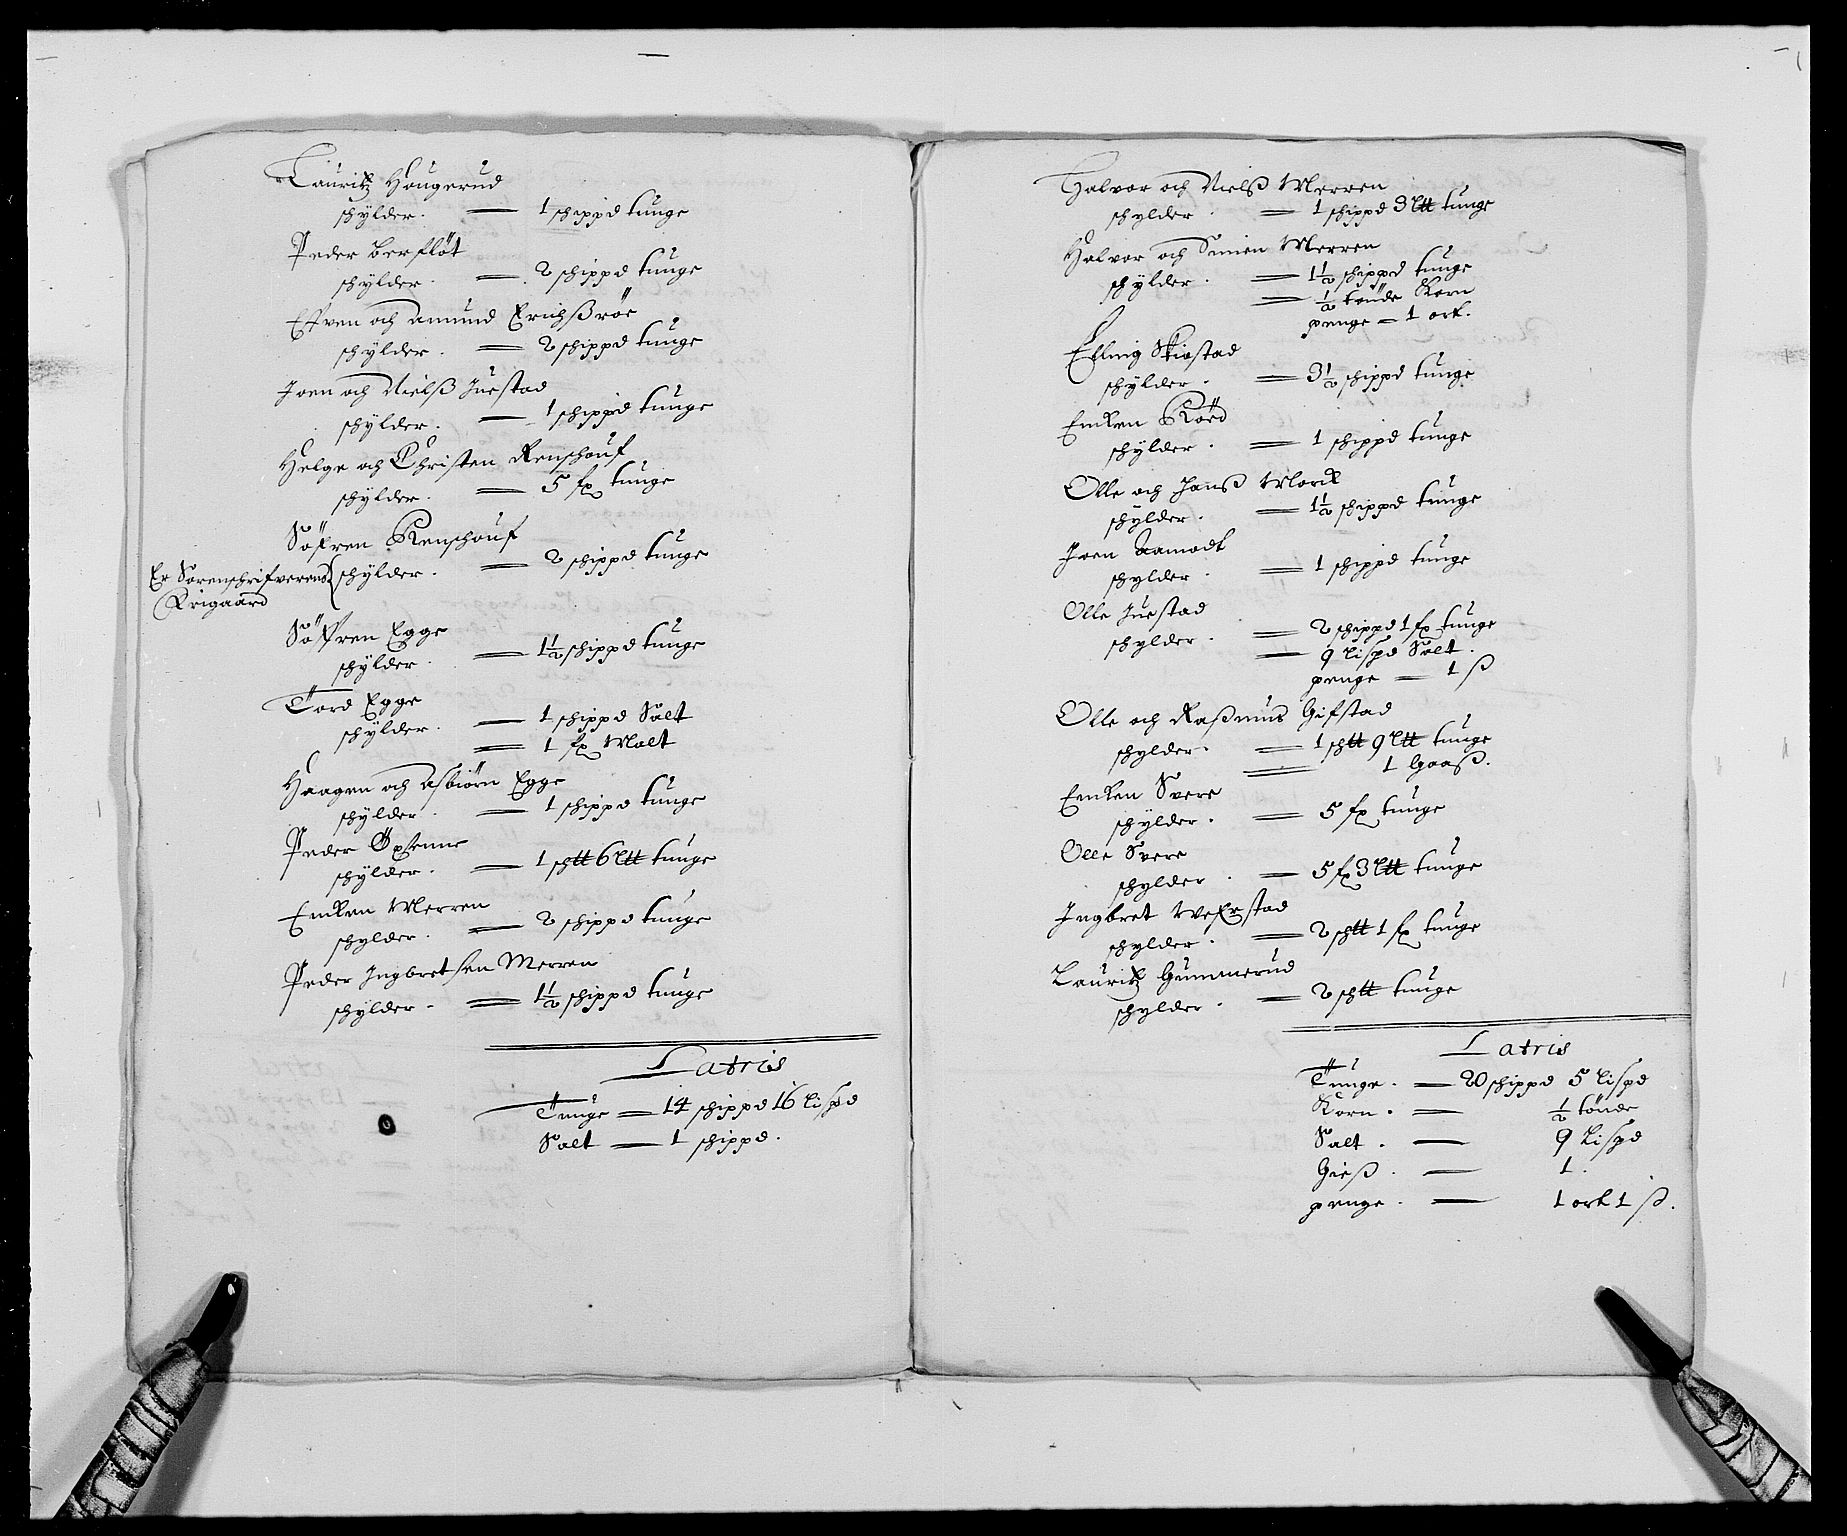 Lauritz Hougerud
schÿlder. — 1 schippd tunge
Peder Berfløt
schÿlder. — 2 schippd tunge
Efven och Amund Erichßröe
schÿlder. — 2 schippd tunge
Joen och Nielß Juestad
schÿlder. — 1 schippd tunge
Helge och Christen Renschouf
schÿlder. — 5 fx tunge
Söfren Renschouf
Er Sorenschrifverens
schÿlder. — 2 schippd tunge
Krigaard
Söfren Egge
schÿlder. — 1½ schippd tunge
Tord Egge
schÿlder. — 1 schippd Salt
— 1 fx Malt
Haagen och Asbiörn Egge
schÿlder. — 1 schippd tunge
Peder
schÿlder. — 1 schtt 6 ltt tunge
Encken Merren
schylder. — 2 schippd tunge
Peder Ingbretsen Merren
schÿlder — 1½ schippd tunge
Latris
Tunge — 14 schippd 16 Lispd
Salt — 1 schippd.
Halvor och Nielß Merren
schylder. — 1 schippd 3 ltt tunge
Halvor och Simen Merren
schÿlder. — 1½ schippd tunge
— ½ tønde Korn
penge — 1 ort.
Elling Skiestad
schÿlder. — 3½ schippd tunge
Encken Röed
schÿlder. — 1 schippd tunge
Olle och Janß Morck
schÿlder. — 1½ schippd tunge
Joen Aamodt
schylder. — 1 schippd tunge
Olle Juestad
schylder. — 2 schippd 1 fx tunge
— 9 Lispd Salt.
penge — 1 ß
Olle och Raßmus Gifstad
schylder. — 1 schtt 9 ltt tunge
— 1 Gaaß.
Encken Svere
schylder. — 5 fx tunge
Olle Svere
schylder. — 5 fx 3 ltt tunge
Ingbret
schylder. — 2 schtt 1 fx tunge
Lauritz Gummerud
schylder. — 2 schtt tunge
Latris
Tunge. — 20 schippd 5 Lispd
Korn. — ½ tönde
Salt. — 9 Lispd
Gieß. — 1.
penge. — 1 ort 1 ß.